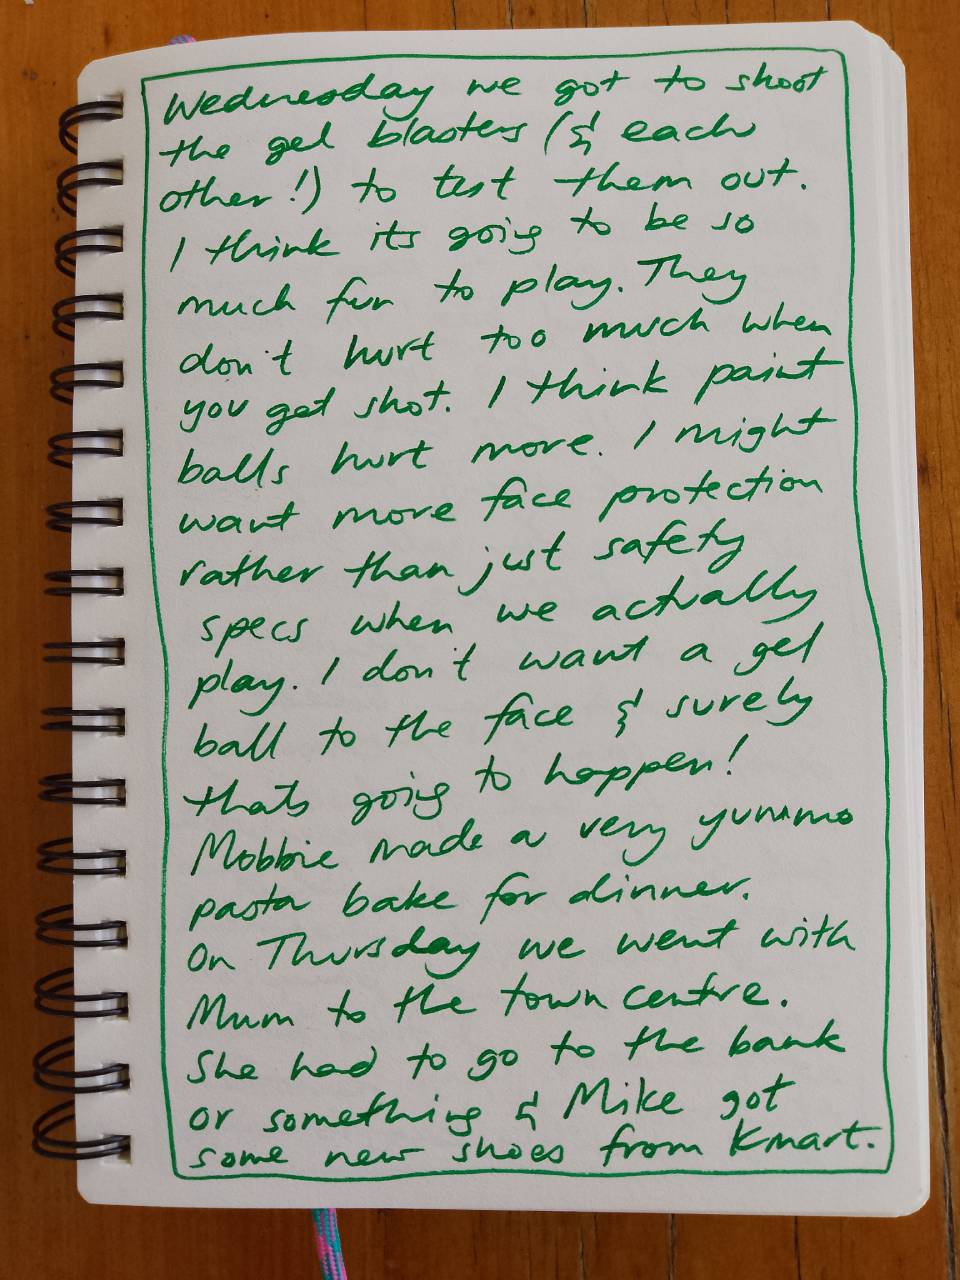 Wednesday we got to shoot
the gel blasters (& each
other!) to test them out.
I think its going to be so
much fun to play. They
don't hurt too much when
you get shot. I think paint
balls hurt more. I might
want more face protection
rather than just safety
specs when we actually
play. I don't want a gel
ball to the face & surely
thats going to happen!
Mobbie made a very yummo
pasta bake for dinner.
On Thursday we went with
Mum to the town centre.
She had to go to the bank
or something & Mike got
some new shoes from Kmart.